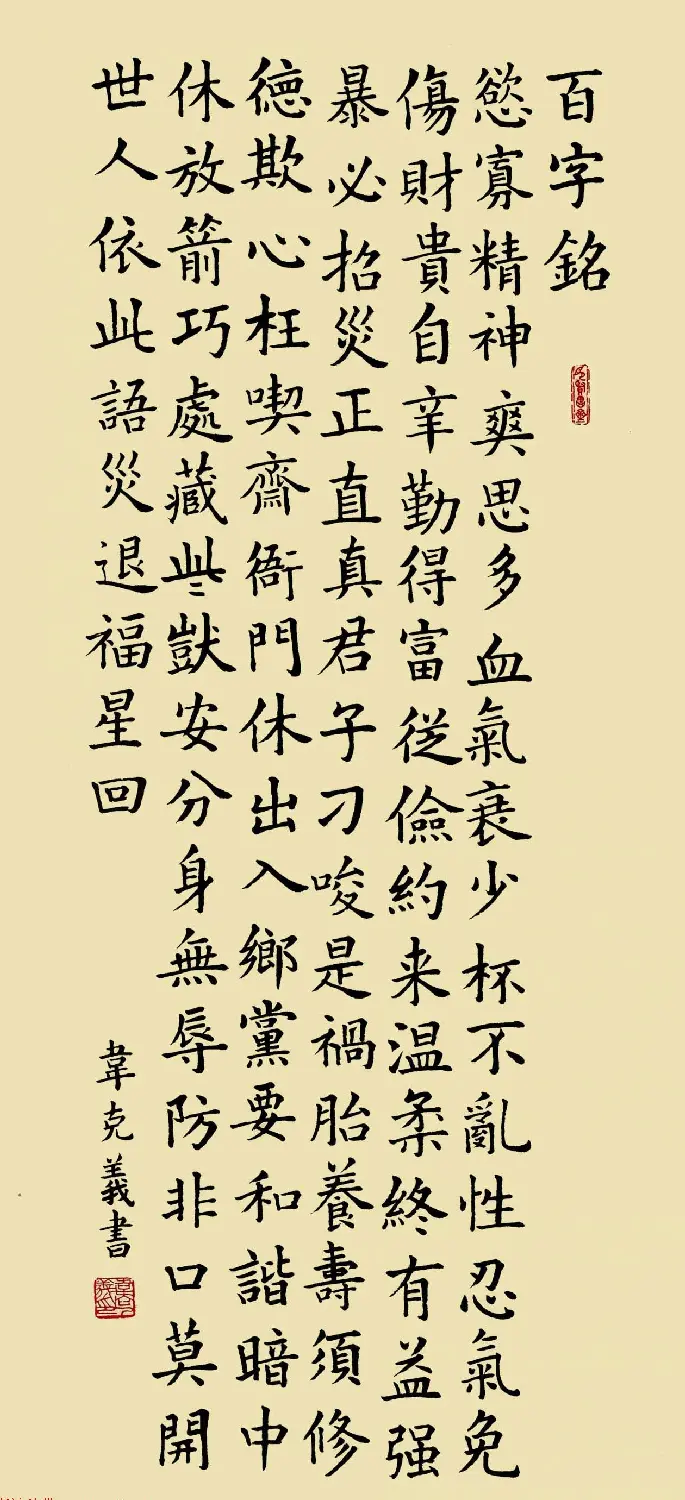 百字銘
慾寡精神爽思多血氣衰少杯不亂性忍氣免
傷財貴自辛勤得富從儉約来温柔終有益强
暴必招災正直真君子刁唆是禍胎養壽須修
德欺心枉喫齋衙門休出入鄉黨要和諧暗中
休放箭巧處藏些獃安分身無辱防非口莫開
世人依此語災退福星回
韋克義書